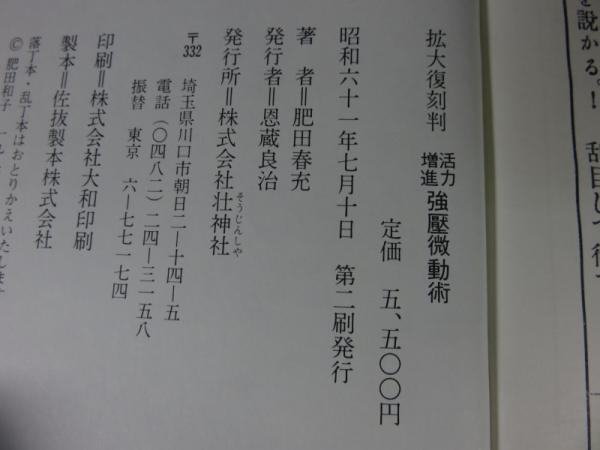 を説かる。!
拡大復刻判 活力増進 強壓微動術
定価 五、五〇〇円
昭和六十一年七月十日 第二刷発行
著者=肥田春充
発行者=恩蔵良治
発行所=株式会社壮神社
そうじんしや
〒332 埼玉県川口市朝日二―十四―五
電話(〇四八二)二四―三一五八
振替 東京 六―七七一七四
印刷=株式会社大和印刷
製本=佐抜製本株式会社
落丁本・乱丁本はおとりかえいたします
© 肥田和子